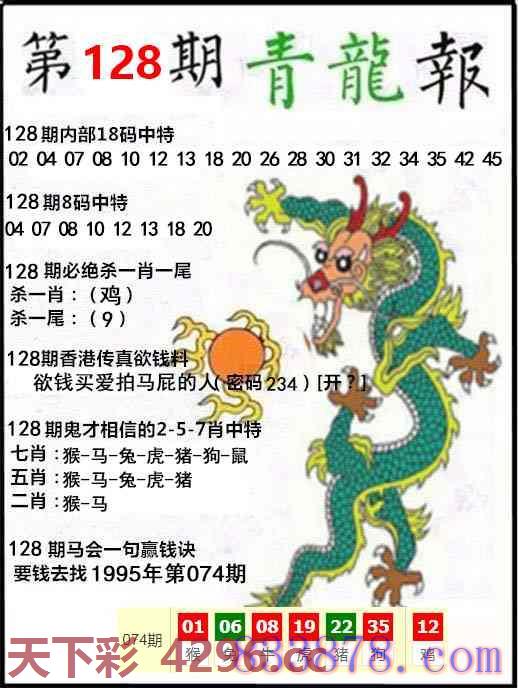 第128期 青龍報
128期内部18码中特
02 04 07 08 10 12 13 18 20 26 28 30 31 32 34 35 42 45
128期8码中特
04 07 08 10 12 13 18 20
128期必绝杀一肖一尾
杀一肖：(鸡)
杀一尾：(9)
128期香港传真欲钱料
欲钱买爱拍马屁的人(密码234)[开？]
128期鬼才相信的2-5-7肖中特
七肖：猴-马-兔-虎-猪-狗-鼠
五肖：猴-马-兔-虎-猪
二肖：猴-马
128期马会一句赢钱诀
要钱去找1995年第074期
074期 01 06 08 19 22 35 12
猴 兔 牛 虎 猪 狗 鸡
天下彩 4296.cc